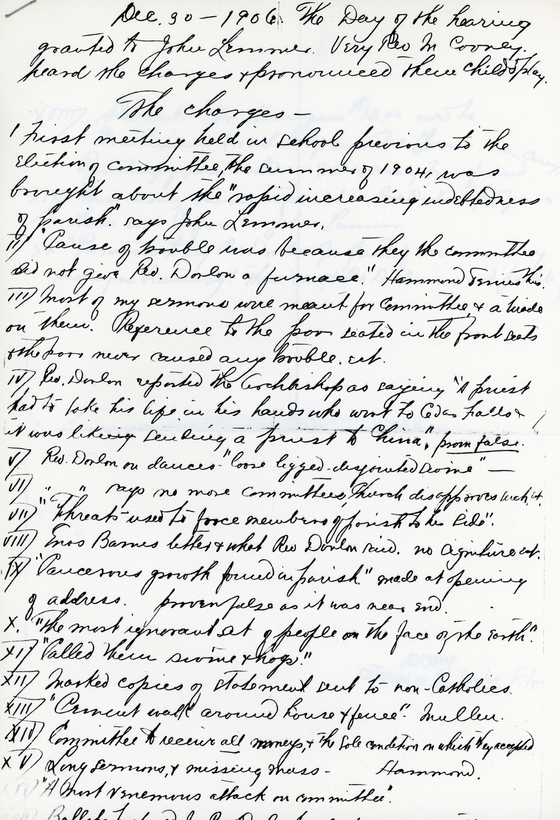 Dec. 30 - 1906. The Day of the hearing
granted to John Lemmer. Very Rev M Cooney.
heard the charges & pronounced them child's play.
The charges -
1 First meeting held in school previous to the
election of committee, the summer of 1904, was
brought about the "rapid increasing indebtedness
of parish." says John Lemmer.
II) "Cause of trouble was because they the committee
did not give Rev. Donlon a furnace." Hammond denies this.
III) Most of my sermons were meant for committee & a tirade
on them. Reference to the poor seated in the front seats
& the poor never caused any trouble. et.
IV) Rev. Donlon reported the Archbishop as saying "A priest
had to take his life in his hands who went to Cedar Falls &
it was like sending a priest to China", prov. false.
V) Rev. Donlon on dances "loose legged - disjointed swine" -
VI) " " says no more committees, Church disapproves such
VII) "Threats used to force members of parish to take side".
VIII) Enos Barnes letter & what Rev Donlon said. no signature
IX) "Cancerous growth found in parish." made at opening
of address. proven false as it was near end.
X. "The most ignorant set of people on the face of the earth."
XI) "Called them swine & hogs."
XII) Marked copies of statement sent to non-Catholics.
XIII) "Cement walk around house & fence". Mullen.
XIV) Committee to receive all moneys, & the sole condition on which they accepted
XV) Long sermons, & missing mass - Hammond.
"A most venemous attack on committee".